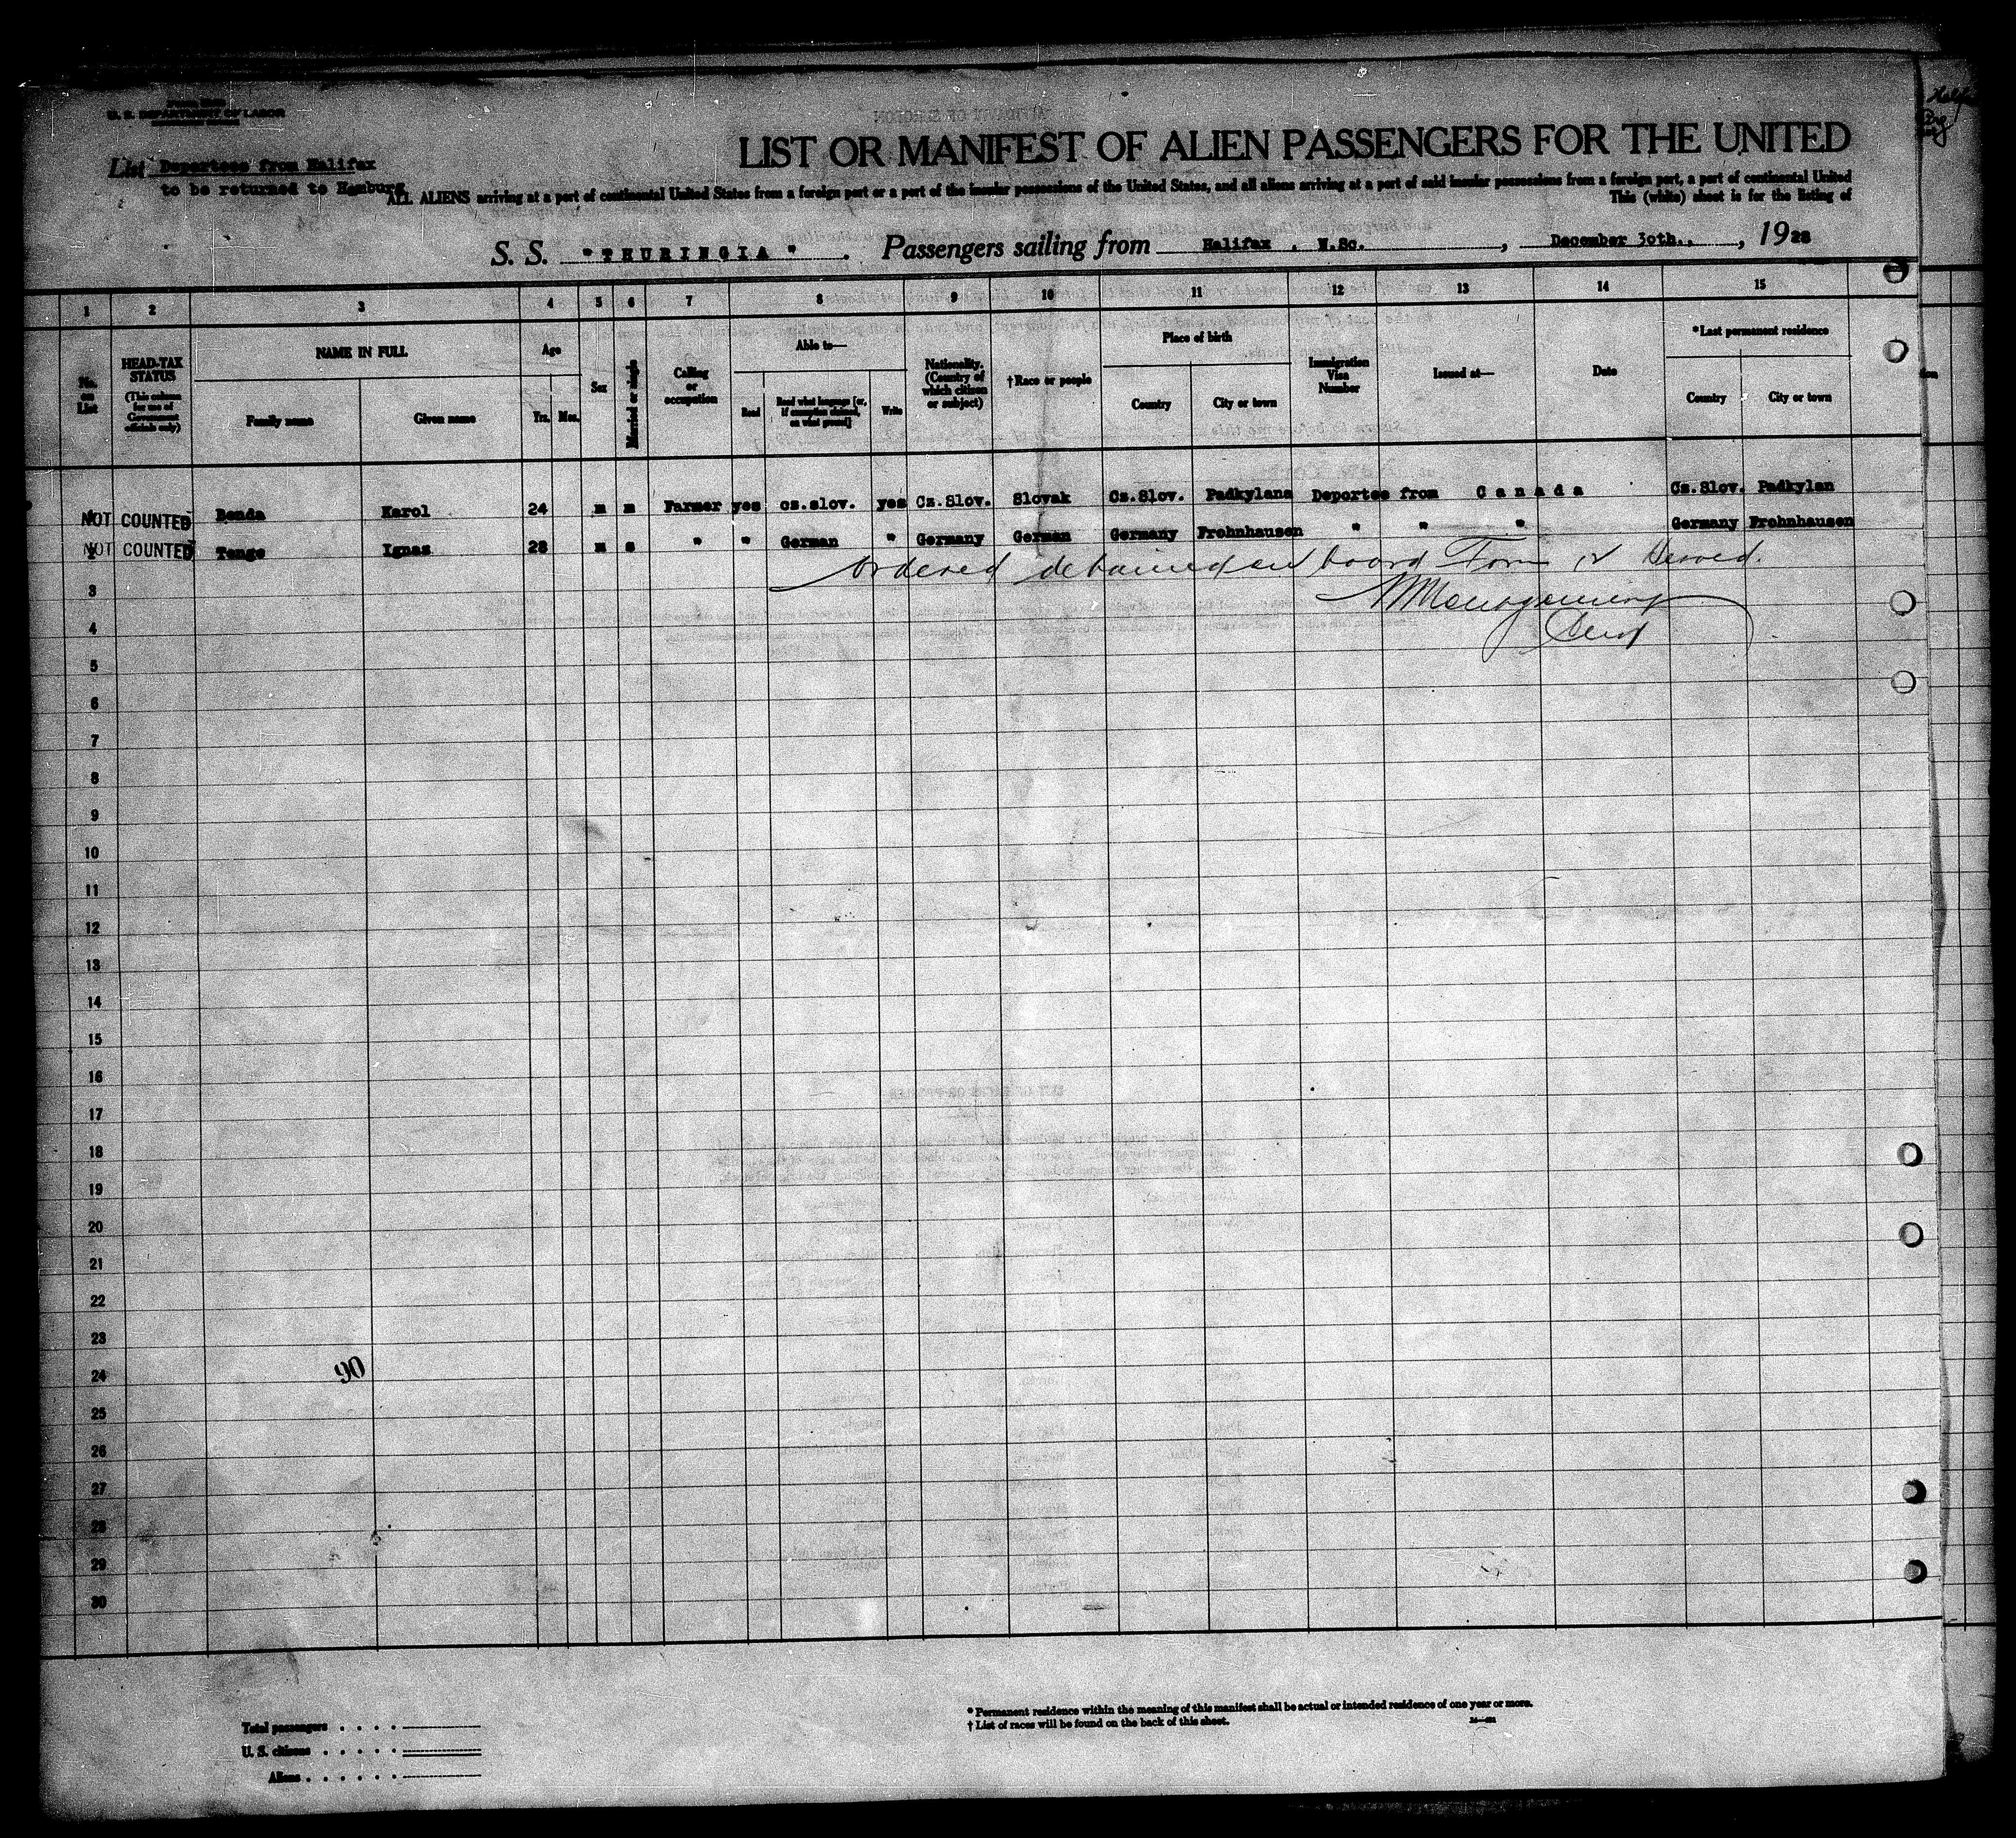 U. S. DEPARTMENT OF LABOR
List Deportees from Halifax
to be returned to Hamburg
LIST OR MANIFEST OF ALIEN PASSENGERS FOR THE UNITED
ALL ALIENS arriving at a port of continental United States from a foreign port or a port of the insular possessions of the United States, and all aliens arriving at a port of said insular possessions from a foreign port, a port of continental United
This (white) sheet is for the listing of
S. S. "THURINGIA". Passengers sailing from Halifax , N.Sc. , December 30th., , 1928
1 2 3 4 5 6 7 8 9 10 11 12 13 14 15
No. on List
HEAD-TAX STATUS (This column for use of Government officials only)
NAME IN FULL
Family name
Given name
Age
Yrs. Mos.
Sex
Married or single
Calling or occupation
Able to—
Read
Read what language [or, if exemption claimed, on what ground]
Write
Nationality. (Country of which citizen or subject)
† Race or people
Place of birth
Country
City or town
Immigration Visa Number
Issued at—
Date
*Last permanent residence
Country
City or town
NOT COUNTED Benda Karol 24 m m Farmer yes cz.slov. yes Cz.Slov. Slovak Cz.Slov. Padkylana Deportee from Canada Cz.Slov. Padkylan
NOT COUNTED Tange Ignaz 28 m s " " German " Germany German Germany Frohnhausen " " " Germany Frohnhausen
Ordered detained on board Form Served.
3
4
5
6
7
8
9
10
11
12
13
14
15
16
17
18
19
20
21
22
23
24
90
25
26
27
28
29
30
* Permanent residence within the meaning of this manifest shall be actual or intended residence of one year or more.
† List of races will be found on the back of this sheet.
Total passengers . . . .
U. S. citizens . . . . .
Aliens . . . . . .